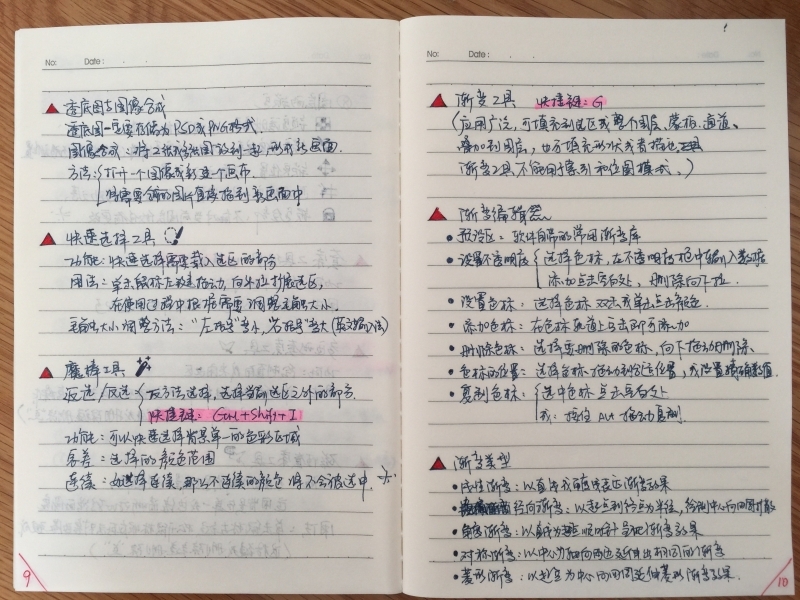 No:  Date:
▲ 透底图与图像合成
透底图一定要存储为PSD或PNG格式.
图像合成：将2张或多张图放到一起,形成新画面.
方法：打开一个图像或新建一个画布.
将需要的图片直接拖到新画面中
▲ 快速选择工具
功能：快速选择需要载入选区的部分
用法：单击鼠标左键拖动,向外拉扩展选区,
在使用过程中根据需要调整笔触大小.
笔触大小调整方法："左括号"变小,"右括号"变大(英文输入法)
▲ 魔棒工具
反选/反选 反方选择,选择当前选区之外的部分.
快捷键：Ctrl+Shift+I
功能：可以快速选择背景单一的色彩区域
容差：选择的颜色范围
连续：如选择连续,那么不连续的颜色将不会被选中.
9
No:  Date:
▲ 渐变工具  快捷键：G
(应用广泛,可填充到选区或整个图层、蒙板、通道、
叠加到图层,也可填充形状或者描边工具
渐变工具不能用于索引和位图模式。)
▲ 渐变编辑器
• 预设区：软件自带的常用渐变库
• 设置不透明度 选择色标,在不透明度框中输入数据
添加点击空白处,删除向下拉.
• 设置色标：选择色标双击或单击点击颜色.
• 添加色标：在色标轨道上单击即可添加
• 删除色标：选择要删除的色标,向下拖动删除.
• 色标的位置：选择色标拖动到合适位置,或设置精确数值.
• 复制色标：选中色标点击空白处
或：按住Alt拖动复制.
▲ 渐变类型
• 线性渐变：以直线或直线表达渐变效果
• 径向渐变：以起点到终点为半径,绘制中心向四周扩散
• 角度渐变：以直线为起点顺时针呈现渐变效果
• 对称渐变：以中心为轴向两边延伸出相同的渐变
• 菱形渐变：以起点为中心向四周延伸菱形渐变效果.
10